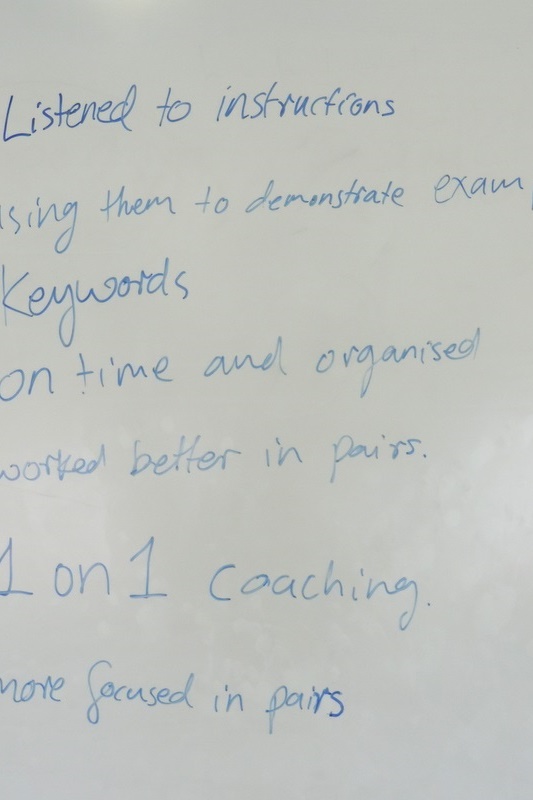 Listened to instructions
using them to demonstrate exam
Keywords
on time and organised
worked better in pairs.
1 on 1 coaching.
more focused in pairs